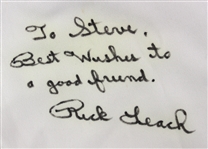 To Steve,
Best Wishes to
a good friend.
Rick Leach